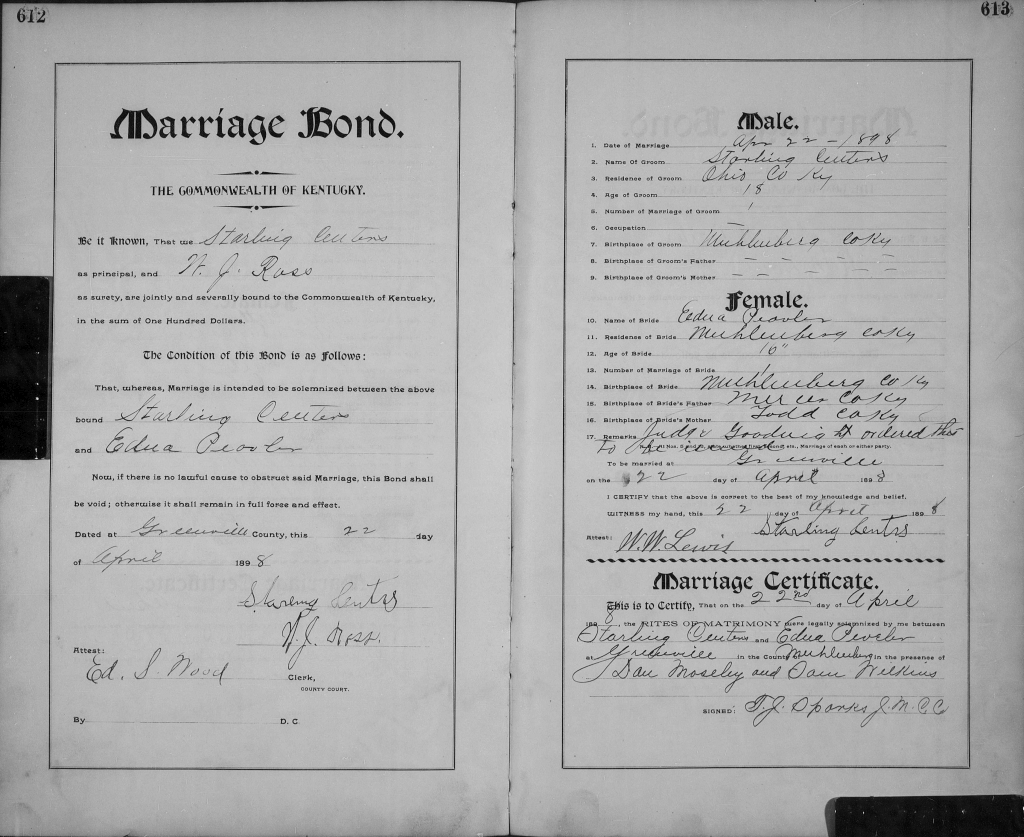 612
Marriage Bond.
THE COMMONWEALTH OF KENTUCKY.
Be it Known, That we Starling Centers
as principal, and W. J. Ross
as surety, are jointly and severally bound to the Commonwealth of Kentucky,
in the sum of One Hundred Dollars.
The Condition of this Bond is as Follows:
That, whereas, Marriage is intended to be solemnized between the above
bound Starling Centers
and Edna Peovler
Now, if there is no lawful cause to obstruct said Marriage, this Bond shall
be void; otherwise it shall remain in full force and effect.
Dated at Greenville County, this 22 day
of April 1898
Starling Centrs
W. J. Ross.
Attest:
Ed. S. Wood Clerk,
COUNTY COURT.
By D. C.
613
Male.
1. Date of Marriage Apr 22 - 1898
2. Name Of Groom Starling Centers
3. Residence of Groom Ohio Co Ky
4. Age of Groom 18
5. Number of Marriage of Groom 1
6. Occupation —
7. Birthplace of Groom Muhlenberg Co Ky
8. Birthplace of Groom's Father — — — — —
9. Birthplace of Groom's Mother — — — — —
Female.
10. Name of Bride Edna Peovler
11. Residence of Bride Muhlenberg Co Ky
12. Age of Bride 16"
13. Number of Marriage of Bride 1
14. Birthplace of Bride Muhlenberg Co Ky
15. Birthplace of Bride's Father Mercer Co Ky
16. Birthplace of Bride's Mother Todd Co Ky
17. Remarks Judge ordered this
to be
etc., Marriage of each or either party.
To be married at Greenville
on the 22 day of April 1898
I CERTIFY that the above is correct to the best of my knowledge and belief.
WITNESS my hand, this 22 day of April 1898
Starling Centrs
Attest: W. W. Lewis
Marriage Certificate.
This is to Certify, That on the 22nd day of April
1898, the RITES OF MATRIMONY were legally solemnized by me between
Starling Centers and Edna Peovler
at Greenville in the County of Muhlenberg in the presence of
Dan Moseley and Sam Wilkins
SIGNED: T. J. Sparks J. M. C. C.